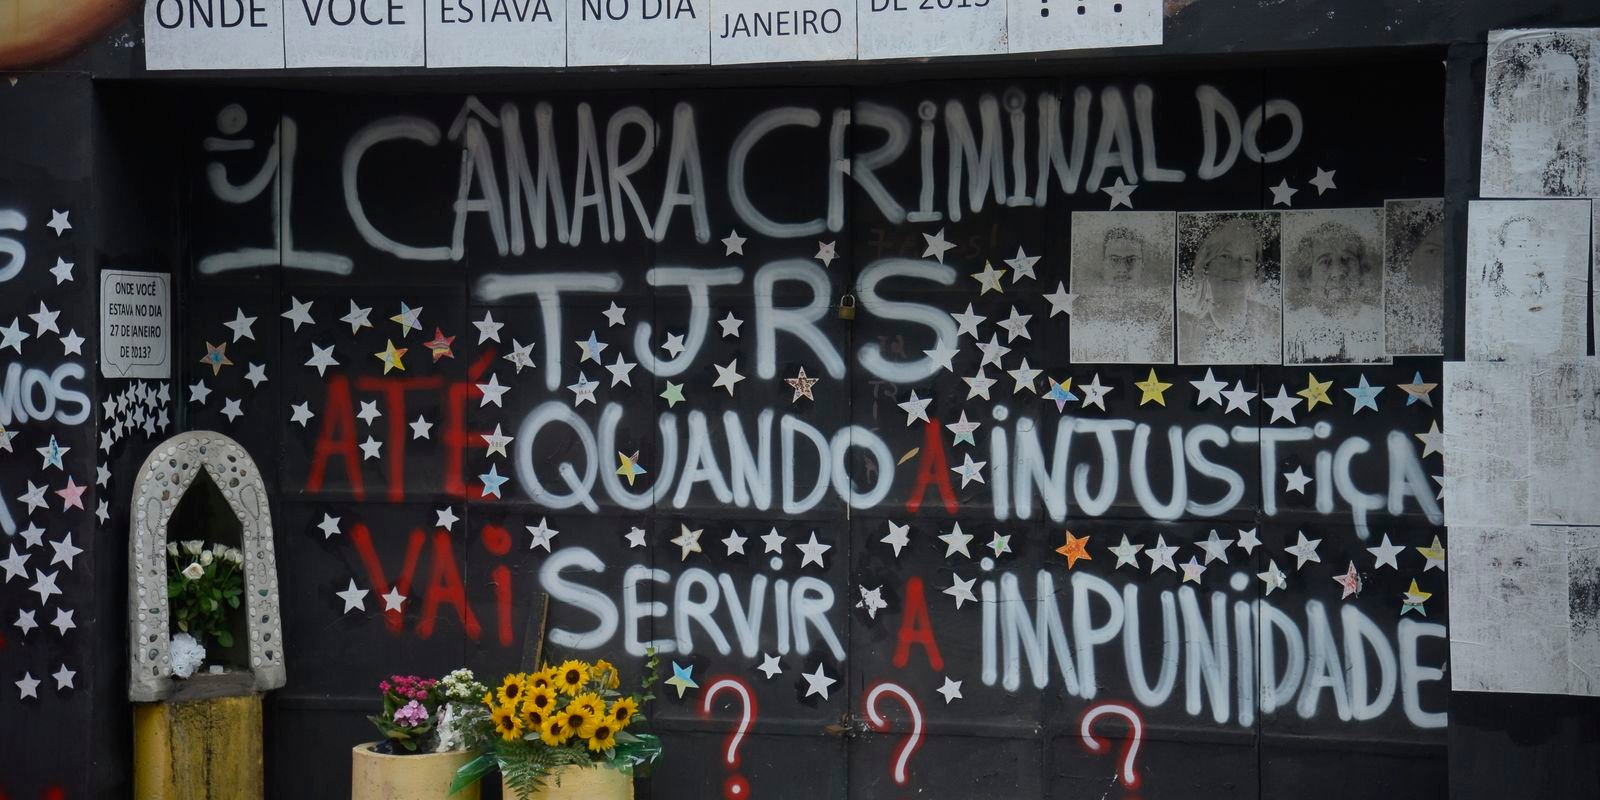 ONDE VOCÊ ESTAVA NO DIA JANEIRO DE 2013 ???
1ª CÂMARA CRIMINAL DO
TJRS
ATÉ QUANDO A INJUSTIÇA
VAI SERVIR A IMPUNIDADE
? ? ?
ONDE VOCÊ
ESTAVA NO DIA
27 DE JANEIRO
DE 2013?
MOS